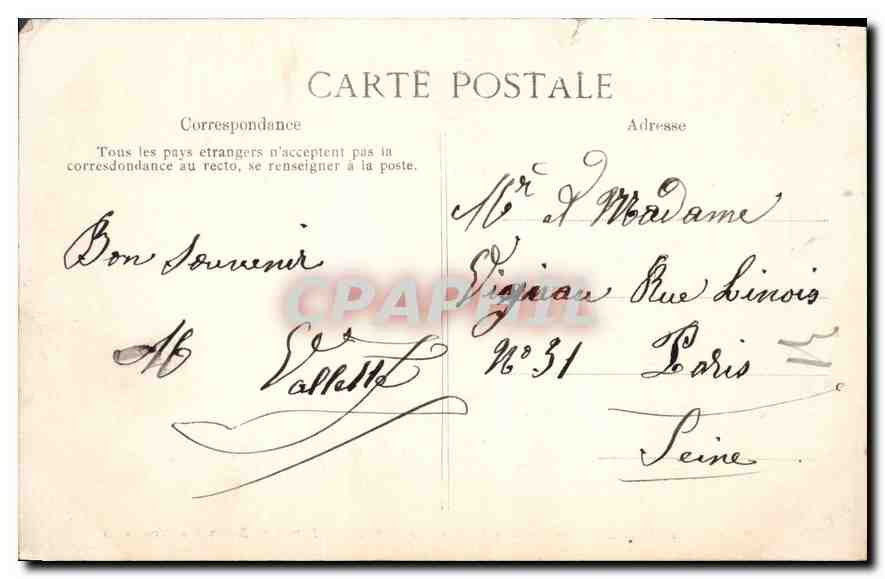 CARTE POSTALE
Correspondance
Tous les pays etrangers n'acceptent pas la
corresdondance au recto, se renseigner à la poste.
Bon Souvenir
M Vallette
Adresse
Mr et Madame
Vignau Rue Linois
No 31 Paris
Seine
15
CPAPHIL